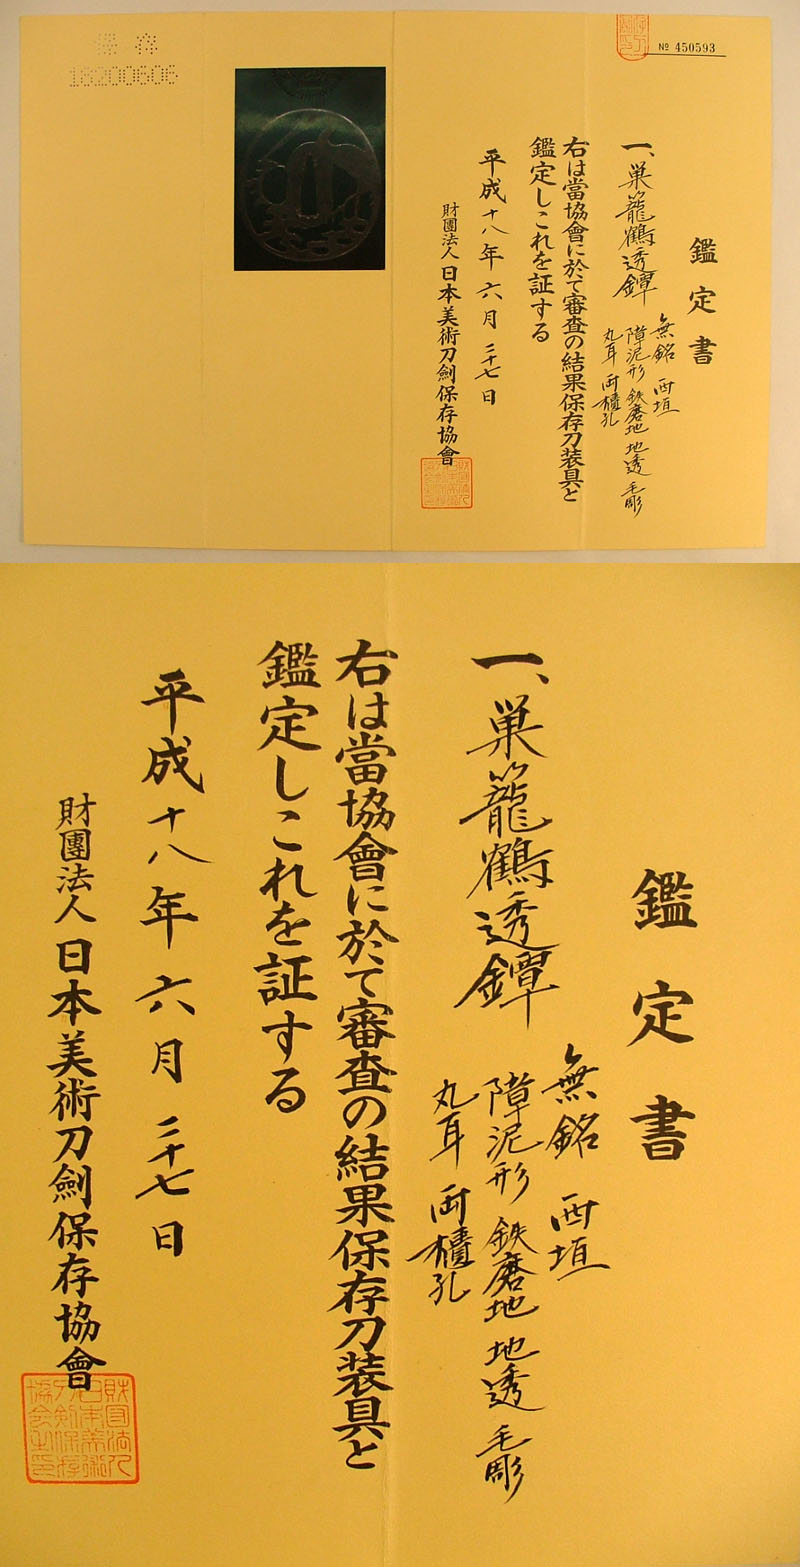 № 450593
鑑定書
一、巣籠鶴透鐔
無銘 西垣
障泥形 鉄磨地 地透 毛彫
丸耳 両櫃孔
右は當協會に於て審査の結果保存刀装具と
鑑定しこれを証する
平成十八年六月二十七日
財團法人日本美術刀劍保存協會
保存
18200606
鑑定書
一、巣籠鶴透鐔
無銘 西垣
障泥形 鉄磨地 地透 毛彫
丸耳 両櫃孔
右は當協會に於て審査の結果保存刀装具と
鑑定しこれを証する
平成十八年六月二十七日
財團法人日本美術刀劍保存協會